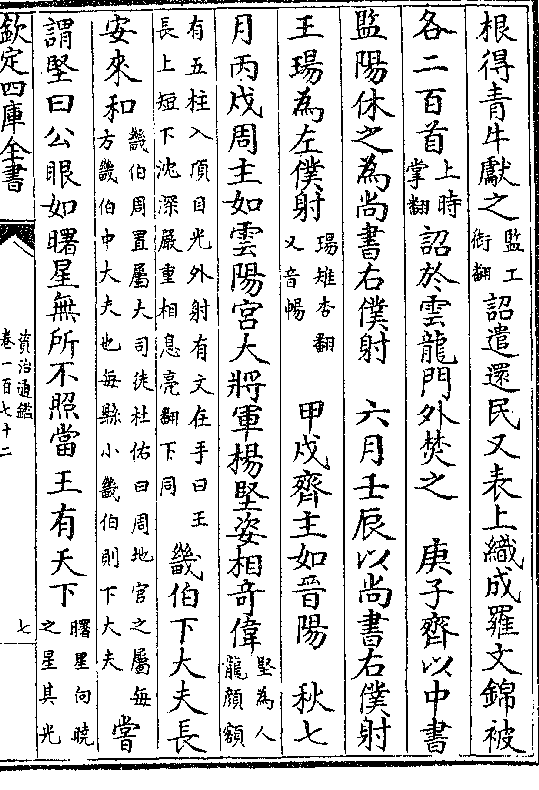 根得青牛獻之監工衘翻詔遣還民又表上織成羅文錦被
各二百首上時掌翻詔於雲龍門外焚之　庚子齊以中書
監陽休之為尚書右僕射　六月壬辰以尚書右僕射
王瑒為左僕射瑒雉杏翻又音暢　甲戌齊主如晉陽　秋七
月丙戌周主如雲陽宮大將軍楊堅姿相奇偉堅為人龍顔額
有五柱入頂目光外射有文在手曰王長上短下沈深嚴重相息亮翻下同畿伯下大夫長
安來和畿伯周置屬大司徒杜佑曰周地官之屬每方畿伯中大夫也每縣小畿伯則下大夫嘗
謂堅曰公眼如曙星無所不照當王有天下曙星向曉之星其光
欽定四庫全書
資治通鑑
卷一百七十二
七